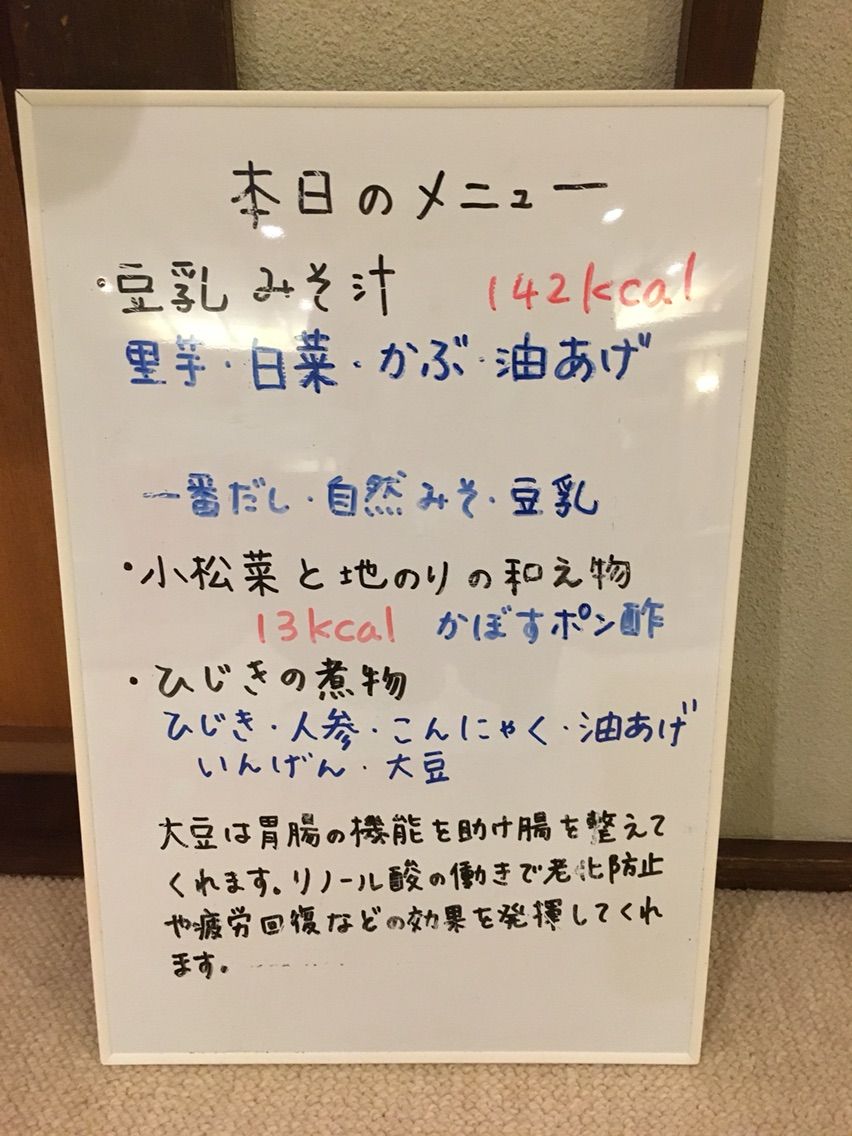 本日のメニュー
・豆乳みそ汁 142kcal
里芋・白菜・かぶ・油あげ
一番だし・自然みそ・豆乳
・小松菜と地のりの和え物
13kcal かぼすポン酢
・ひじきの煮物
ひじき・人参・こんにゃく・油あげ
いんげん・大豆
大豆は胃腸の機能を助け腸を整えて
くれます。リノール酸の働きで老化防止
や疲労回復などの効果を発揮してくれ
ます。